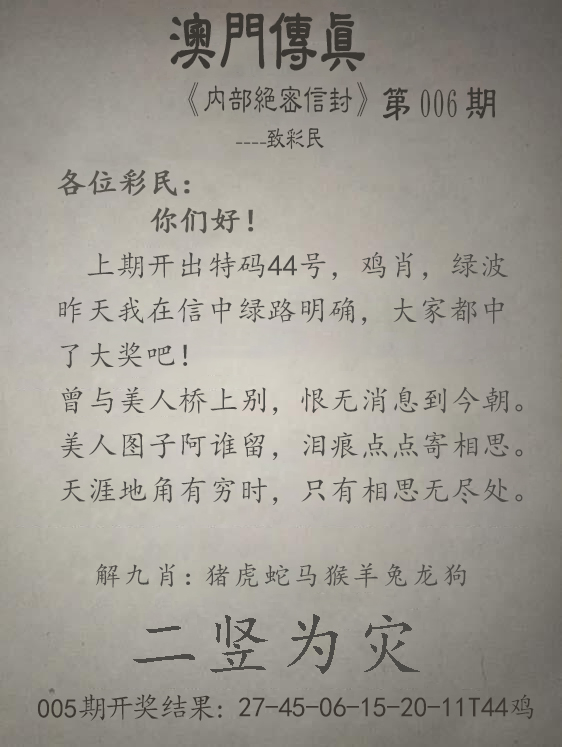 澳門傳眞
《内部絕密信封》第006期
----致彩民
各位彩民：
你们好！
上期开出特码44号，鸡肖，绿波
昨天我在信中绿路明确，大家都中
了大奖吧！
曾与美人桥上别，恨无消息到今朝。
美人图子阿谁留，泪痕点点寄相思。
天涯地角有穷时，只有相思无尽处。
解九肖：猪虎蛇马猴羊兔龙狗
二竖为灾
005期开奖结果：27-45-06-15-20-11T44鸡